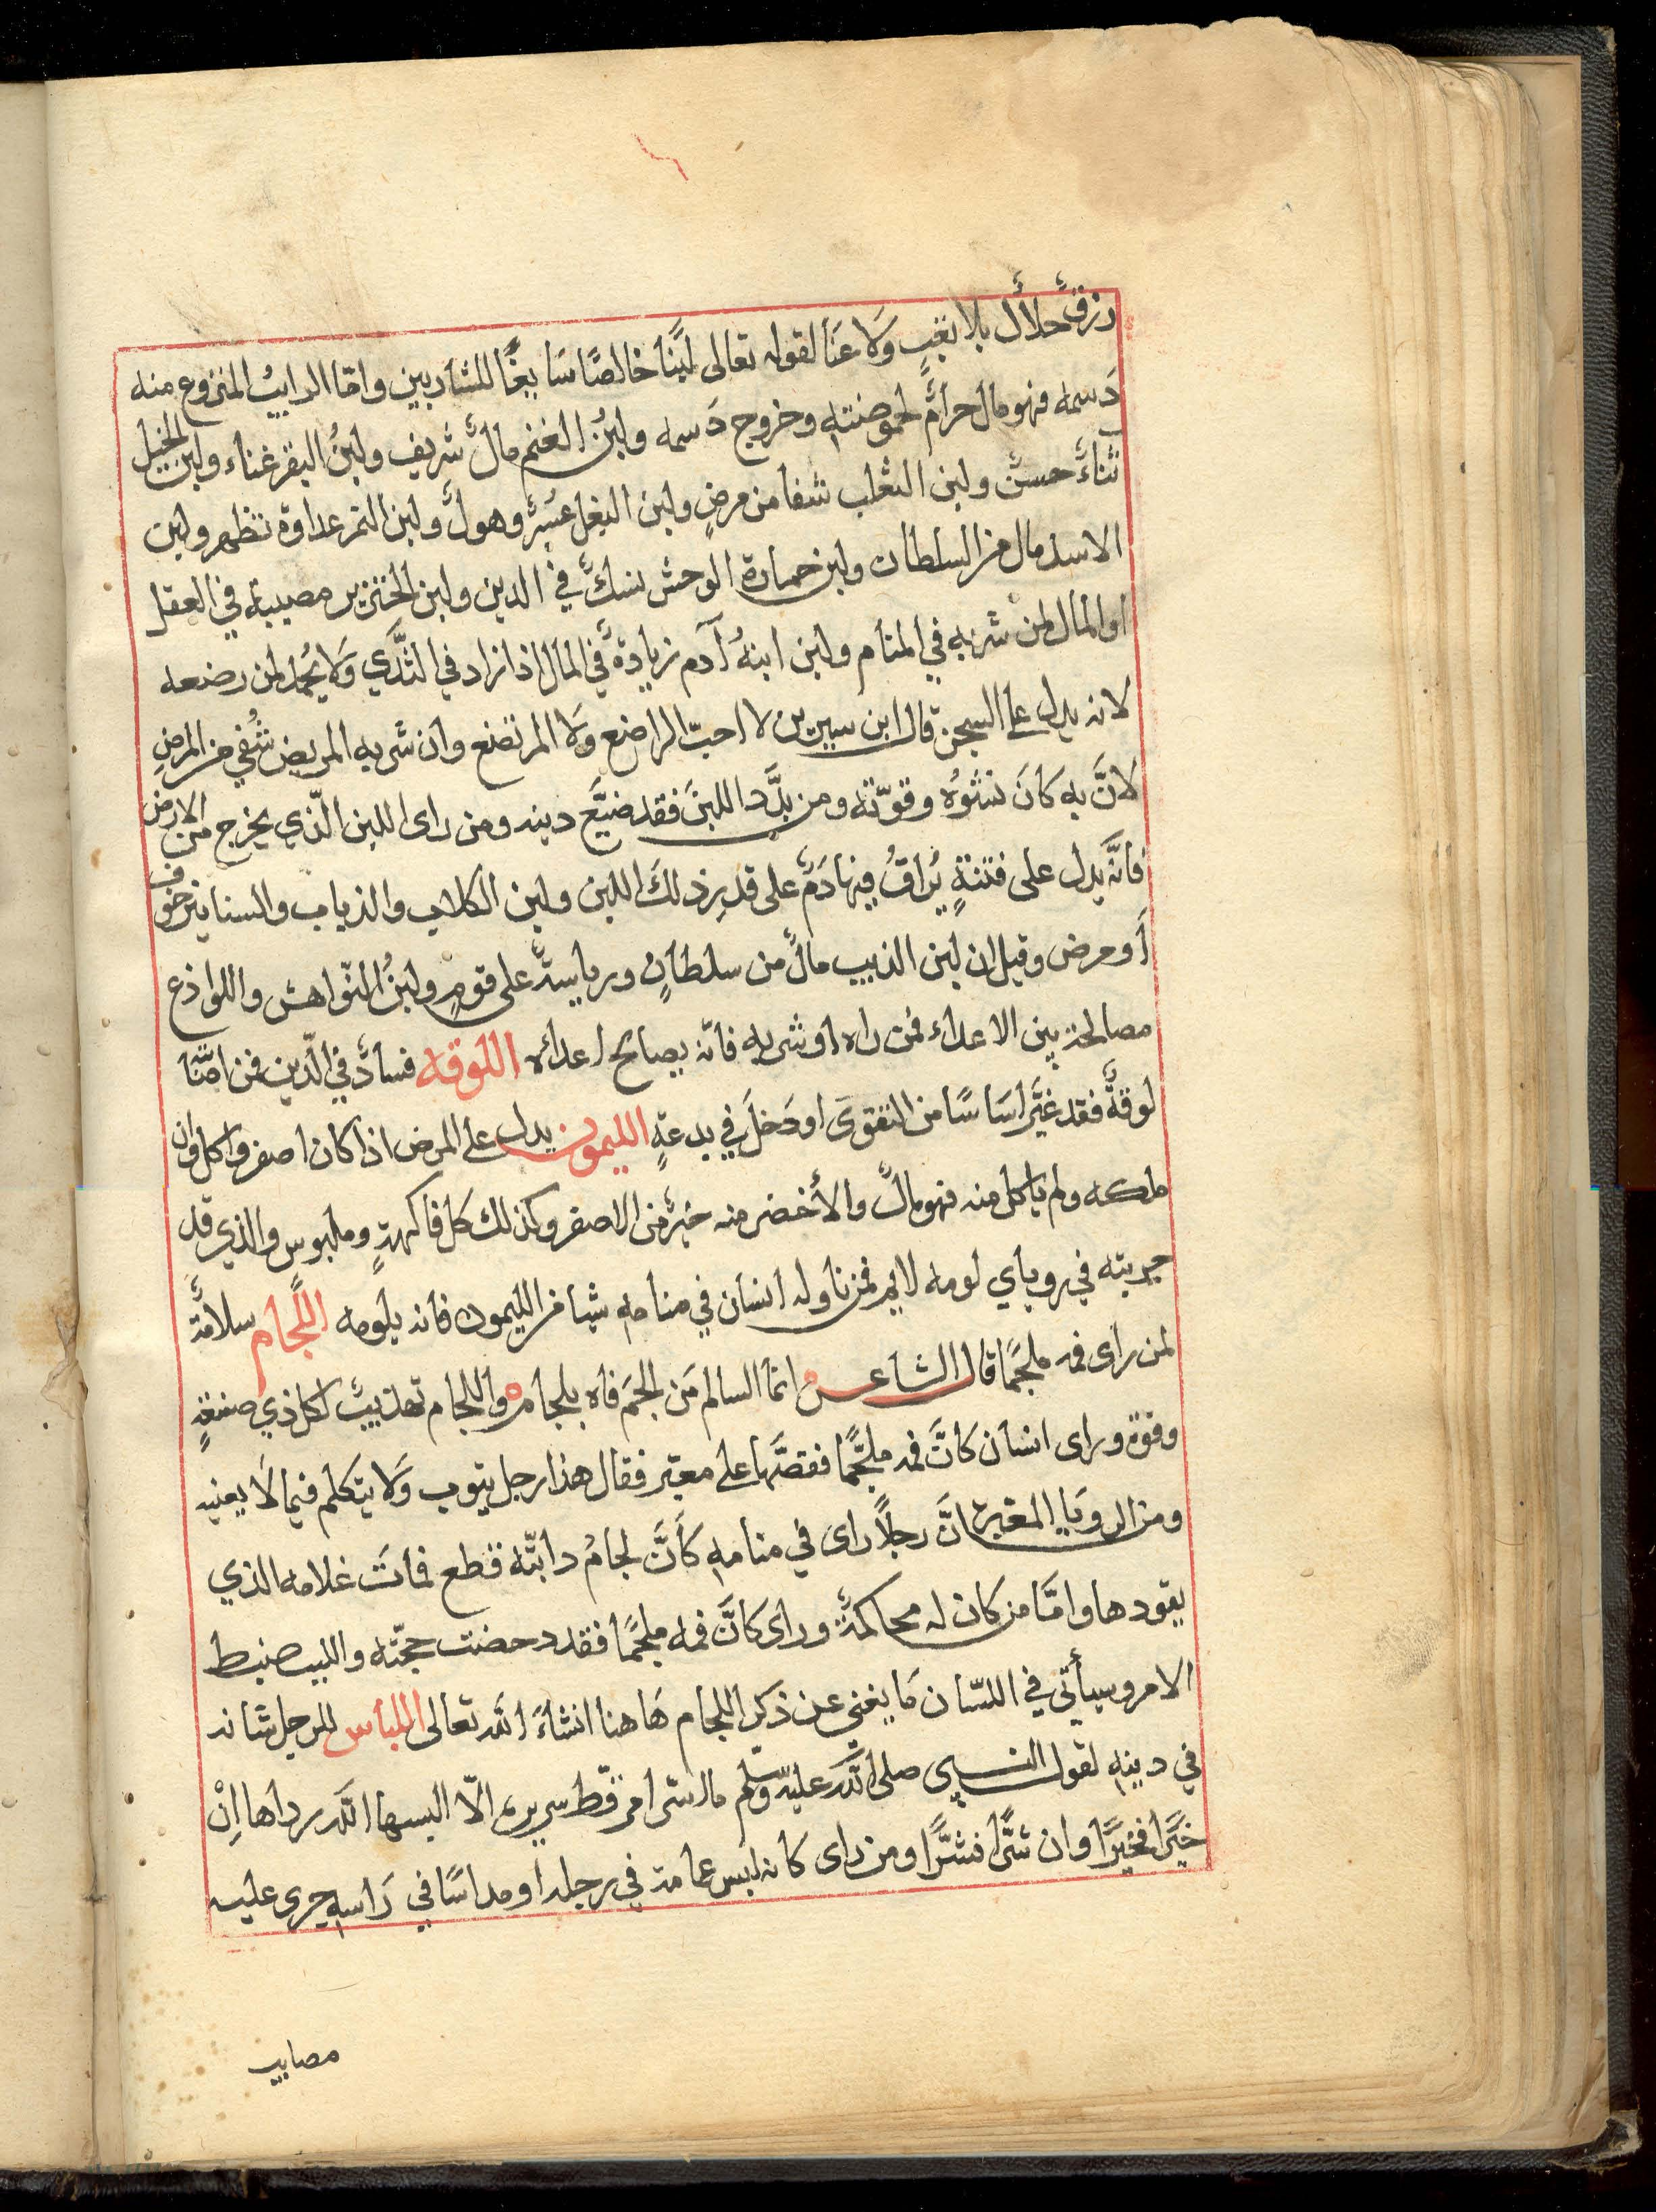 رزقٌ حلالٌ بلا تعبٍ وَلا عَنَا لقوله تعالى لبَنًا خالصًا سَايغًا للشاربين وامّا الرايبُ المنزوع منه
دَسمه فهو مال حرامٌ لحموضته وخروج دَسمه ولبنُ الغنم مالٌ شريف ولبنُ البقر غناء ولبن الخيل
ثناءٌ حسنٌ ولبن الثعلب شفا من مرضٍ ولبن البغل عُسرٌ وهولٌ ولبن النمر عداوة تظهر ولبن
الاسد مال من السلطان ولبن حمارة الوحش نسكٌ في الدين ولبن الخنزير مصيبة في العقل
او المال لمن شربه في المنام ولبن ابنةُ آدم زيادةٌ في المال اذا زاد في الثَّدي وَلا يُحمد لمن رضعه
لانه يدل على السجن قال ابن سيرين لا احبّ الراضع وَلا المرتضع وان شربه المريض شُفي من المرضِ
لانَّ به كَانَ نشؤهُ وقوّته ومن بدَّد اللبنَ فقد ضيَّع دينه ومن راى اللبن الّذي يخرج من الارض
فانَّه يدل على فتنةٍ يُراقُ فيها دَمٌ على قدرِ ذلكَ اللبن ولبن الكلاب والذياب والسنانير خوف
أو مرض وقيل ان لبن الذيب مالٌ من سلطانٍ ورياسةٌ على قومٍ ولبنُ النّواهش واللواذع
مصالحة بين الاعداء فمن راه او شربه فانّه يصالح اعداءه اللوقه فسادٌ في الدّين فمن
لوقةً فقد غيَّر اسَاسًا من التقوى او دَخلَ في بدعةٍ الليمون يدل على المرض اذا كان اصفر واكل وان
ملكه ولم ياكل منه فهو مالٌ والأخضر منه خيرٌ من الاصفر وكذلك كل فاكهةٍ وملبوس والذي قد
جربته في روياي لومه لايم فمن ناوله انسان في منامهِ شيا من الليمون فانه يلومه اللّجام سلامةٌ
لمن راى فمه ملجَمًا قال الشاعر انما السالم مَن الجَم فاه بلجام واللجام تهذيبٌ لكل ذي صنعةٍ
وقوة وراى انسان كانَّ فمه ملجَّمًا فقصَّها على معبر فقال هذا رجل يتوب وَلا يتكلم فيما لَا يعنيه
ومن الرويَا المعبرة انَّ رجلًا راى في منامهِ كَأَنَّ لجامُ دابّته قطع فماتَ غلامه الذي
يقودها وامَّا من كان له محاكمةٌ وراى كَانَّ فمه ملجمًا فقد دحضت حجّته واللبب ضبط
الامر وسيأتي في اللسّان مَا يغني عن ذكر اللجام هَا هنا انشاءَ الله تعالى اللباس للرجل شانه
في دينهِ لقول النبي صلى الله عليه وسلم ما اسرّ امرٌ قطّ سريرة الّا البسها الله رداها اِنْ
خيرًا فخيرًا وان شرًّا فشرًّا ومن راى كانه لبس عمامة في رجله او مداسًا في رَاسهِ جرى عليه
مصايب